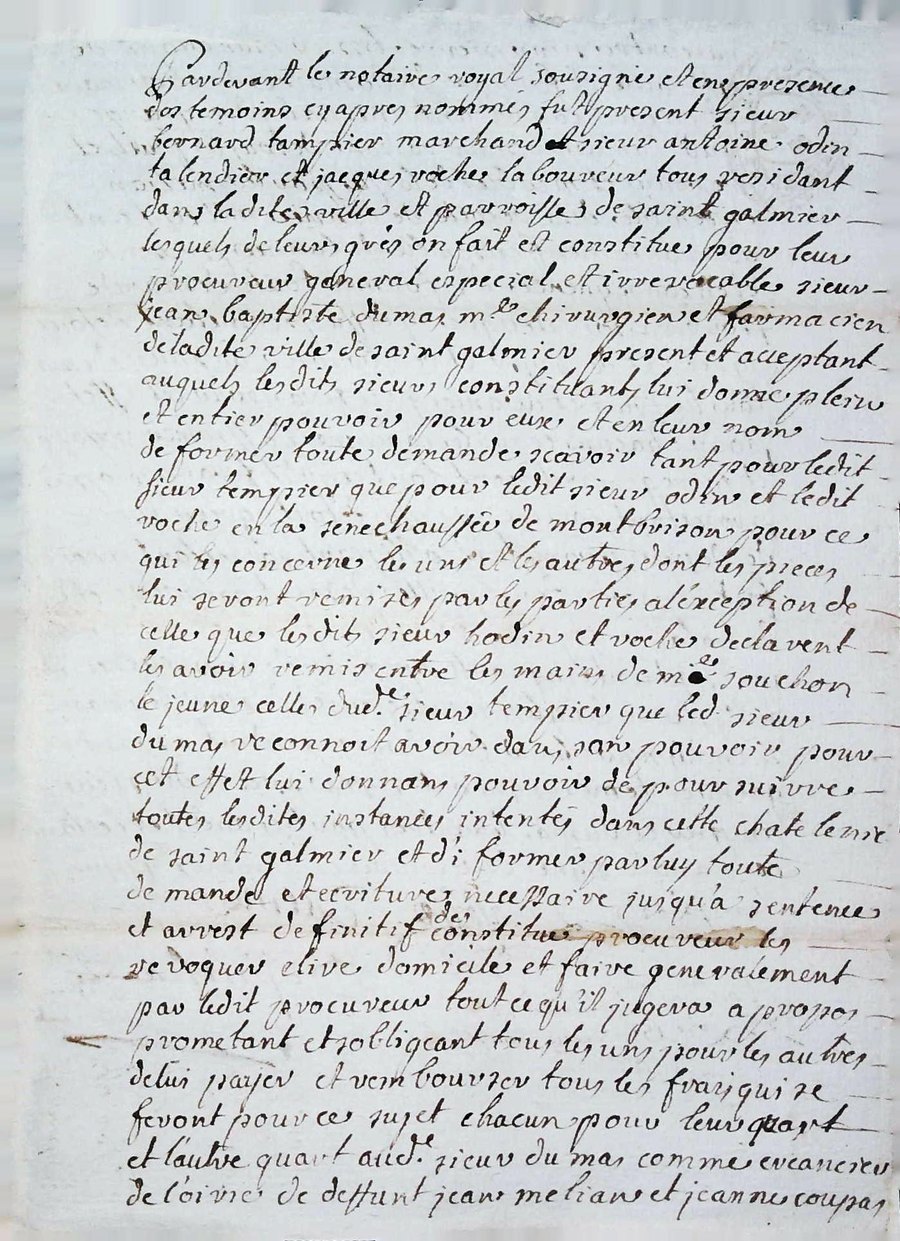 Pardevant le notaire royal sousigné et en presence
des temoins cy apres nommés fut present sieur
bernard tampier marchand et sieur antoine odin
talendier et jacques roche laboureur tous residant
dans ladite ville et parroisse de saint galmier
lesquels de leurs grés on fait et constitue pour leur
procureur general especial et irrevocable sieur
jean baptiste dumas mre chirurgien et farmacien
de ladite ville de saint galmier present et acceptant
auquels lesdits sieurs constituants lui donne plein
et entier pouvoir pour eux et en leur nom
de former toute demande scavoir tant pour ledit
sieur tempier que pour ledit sieur odin et ledit
roche en la senechaussée de montbrison pour ce
qui les concerne les uns et les autres dont les pieces
lui seront remises par les parties a léxception de
celle que lesdits sieur hodin et roche declarent
les avoir remis entre les mains de me souchon
le jeune celles dude. sieur tempier que led sieur
dumas reconnoit avoir dans son pouvoir pour
cet effet lui donnans pouvoir de poursuivre
toutes lesdites instances intentés dans cette chatelenie
de saint galmier et d'i former par luy toute
demande et ecritures necessaire jusqu'a sentence
et arrest definitif de constitue procureur les
revoquer elire domicile et faire generalement
par ledit procureur tout ce qu'il jugera a propos
prometant et sobligeant tous les uns pour les autres
de lui payer et rembourser tous les frais qui se
feront pour ce sujet chacun pour leur quart
et l'autre quart aude. sieur dumas comme creancier
de l'oirie de deffunt jean melian et jeanne coupas